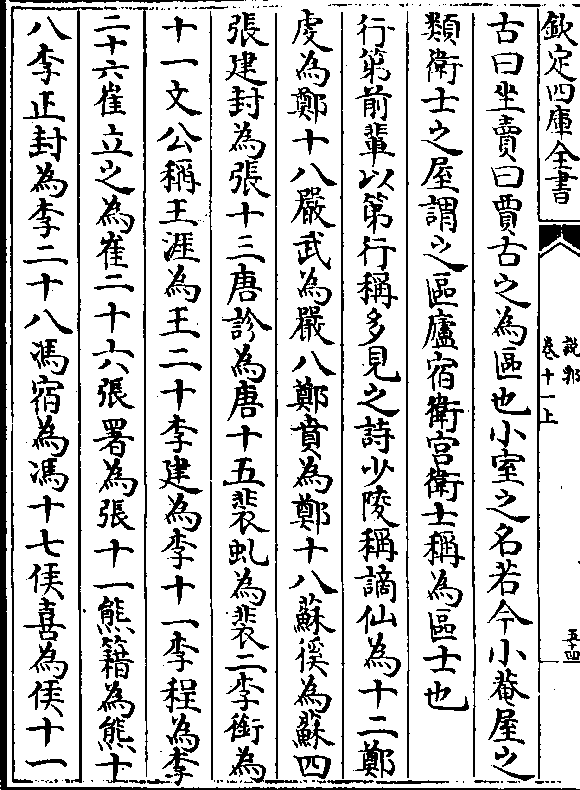 欽定四庫全書
說郛
卷十一上
五十四
古曰坐賣曰賈古之為區也小室之名若今小菴屋之
類衛士之屋謂之區廬宿衛宫衛士稱為區士也
行第前輩以第行稱多見之詩少陵稱謫仙為十二鄭
虔為鄭十八嚴武為嚴八鄭賁為鄭十八蘇徯為蘇四
張建封為張十三唐診為唐十五裴虬為裴二李銜為
十一文公稱王涯為王二十李建為李十一李程為李
二十六崔立之為崔二十六張署為張十一熊籍為熊十
八李正封為李二十八馮宿為馮十七侯喜為侯十一